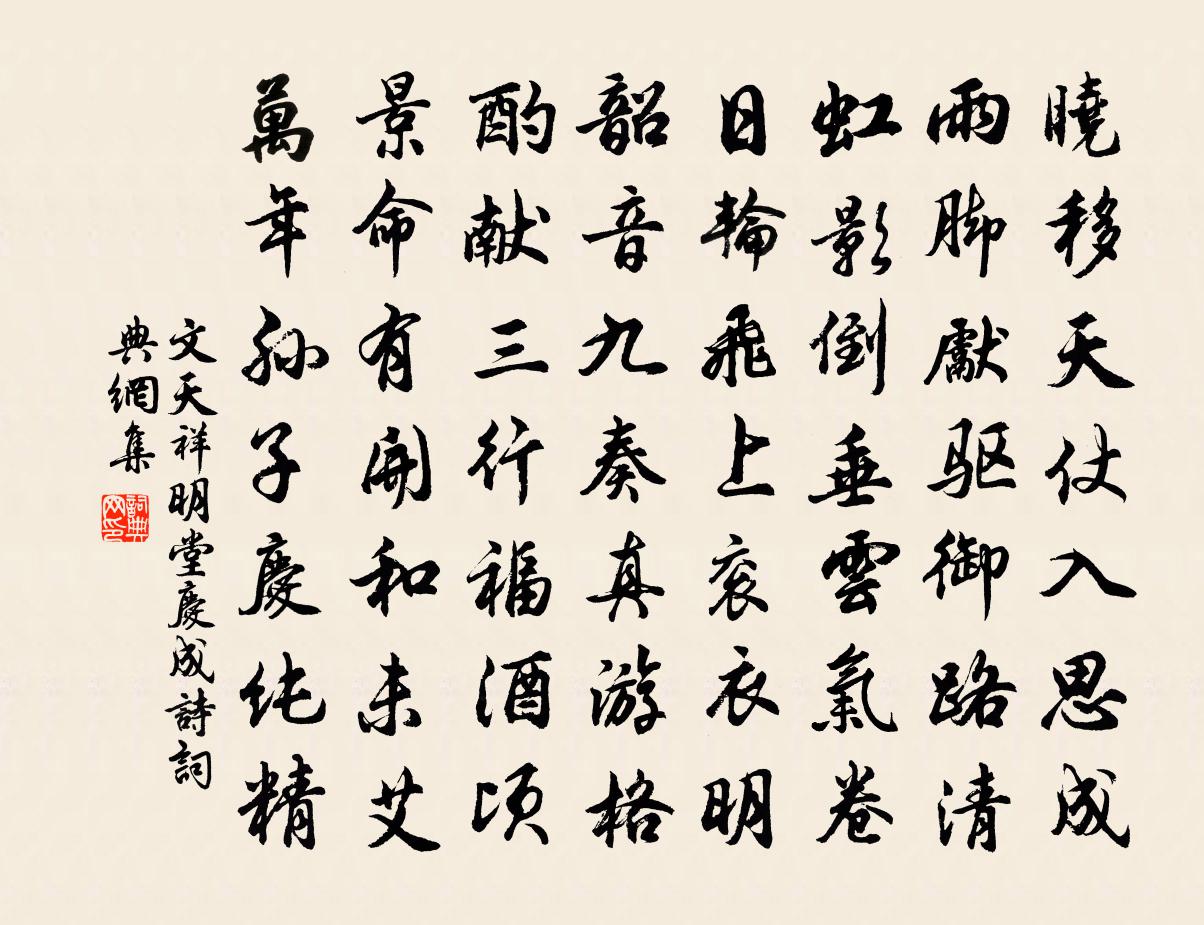 曉移天仗入思成
雨脚獻驱御路清
虹影倒垂雲氣卷
日輪飛上衮衣明
韶音九奏真游格
酌献三行福酒頃
景命有開和未艾
萬年孙子慶纯精
文天祥明堂慶成詩詞
典網集
詞典网印